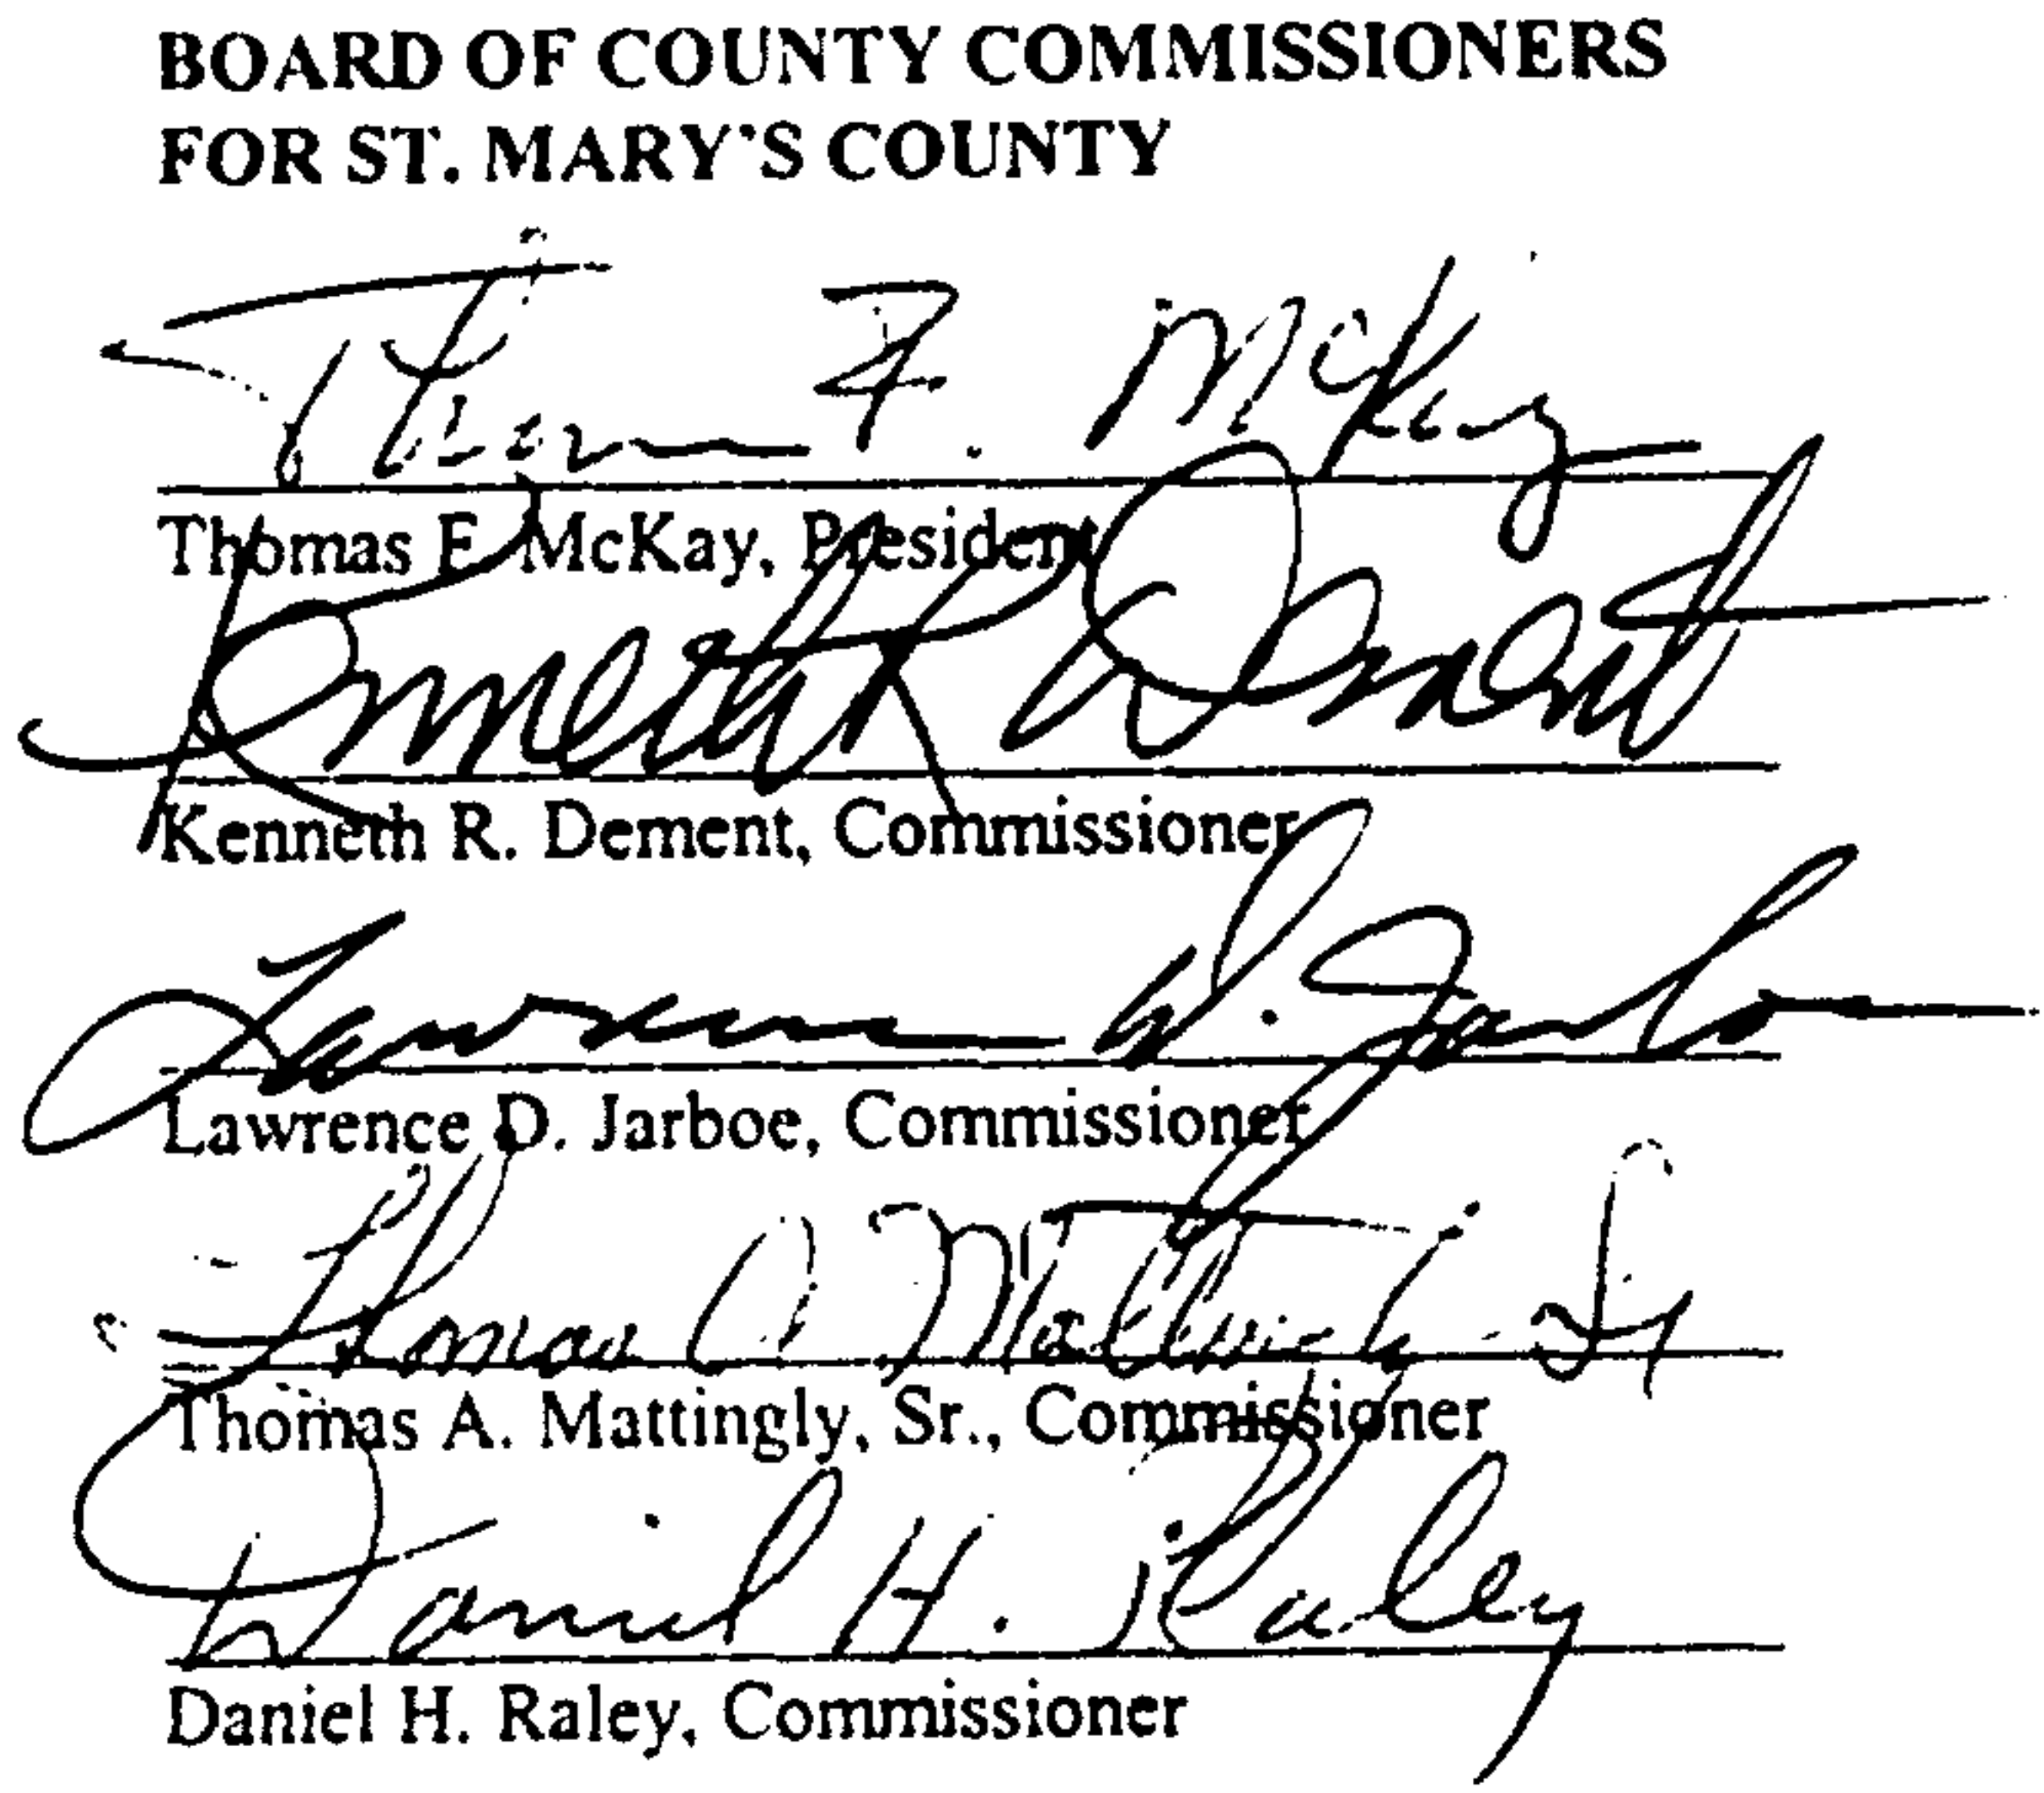 BOARD OF COUNTY COMMISSIONERS
FOR ST. MARY'S COUNTY
Thomas F. McKay
Thomas F. McKay, President
Kenneth R Dement
Kenneth R. Dement, Commissioner
Lawrence D. Jarboe
Lawrence D. Jarboe, Commissioner
Thomas A. Mattingly Sr
Thomas A. Mattingly, Sr., Commissioner
Daniel H. Raley
Daniel H. Raley, Commissioner